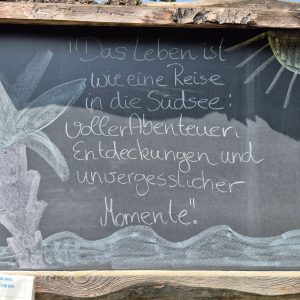 "Das Leben ist
wie eine Reise
in die Südsee:
voller Abenteuer,
Entdeckungen und
unvergesslicher
Momente".